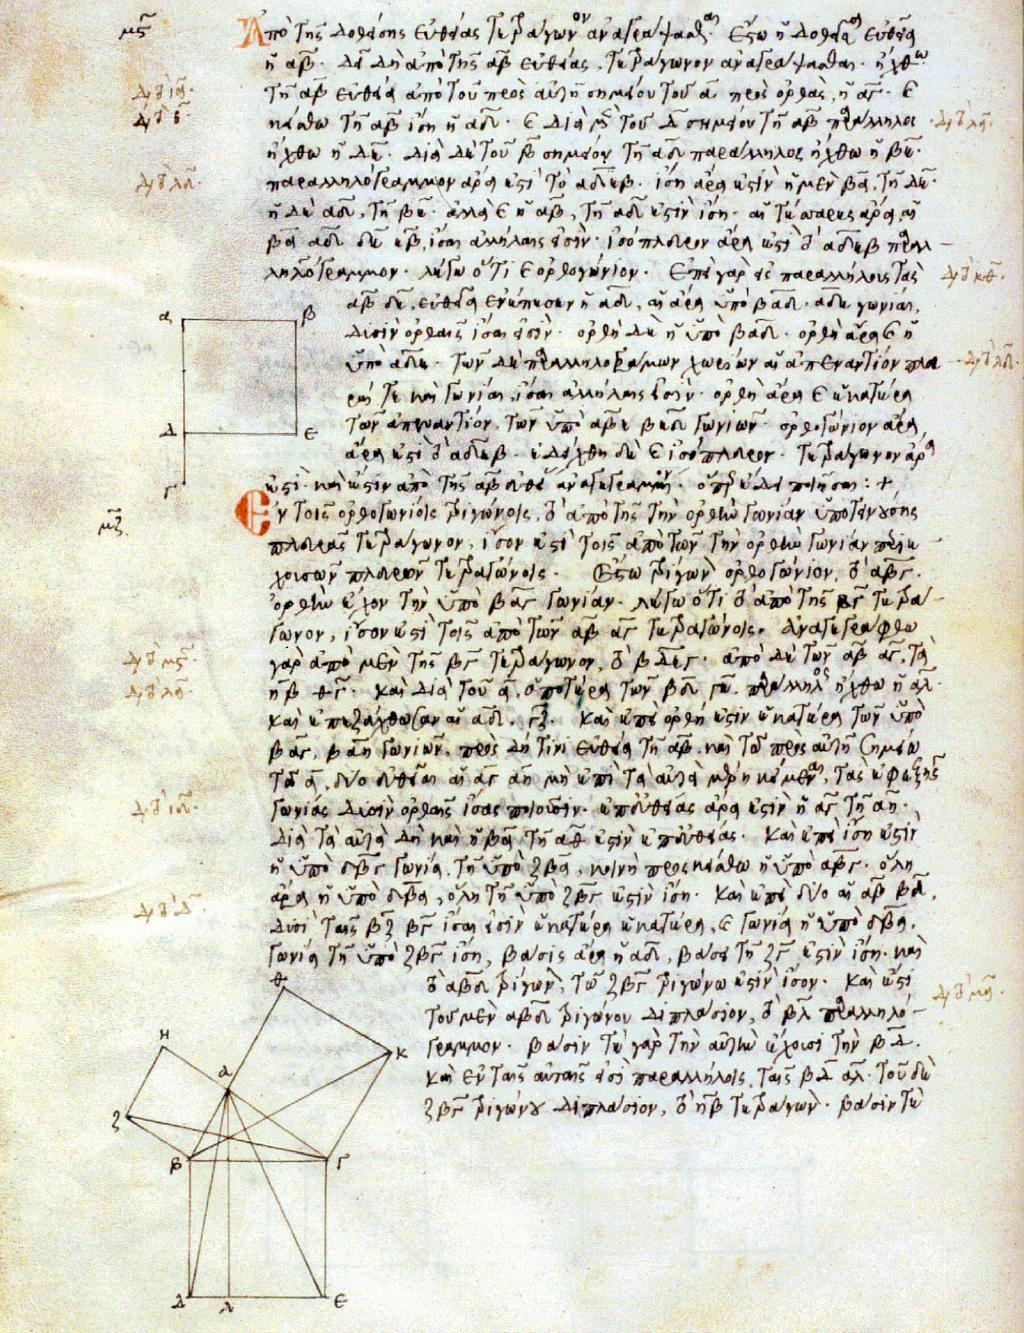 μϛ
Ἀπὸ τῆς δοθείσης εὐθείας τετράγωνον ἀναγράψαι. ἔστω ἡ δοθεῖσα εὐθεῖα
ἡ αβ. δεῖ δὴ ἀπὸ τῆς αβ εὐθείας, τετράγωνον ἀναγράψασθαι. ἤχθω
τῇ αβ εὐθείᾳ ἀπὸ τοῦ πρὸς αὐτῇ σημείου τοῦ α πρὸς ὀρθὰς, ἡ αγ. καὶ
κείσθω τῇ αβ ἴση ἡ αδ. καὶ διὰ μὲν τοῦ δ σημείου τῇ αβ παράλληλος
ἤχθω ἡ δε. διὰ δὲ τοῦ β σημείου τῇ αδ παράλληλος ἤχθω ἡ βε.
παραλληλόγραμμον ἄρα ἐστὶ τὸ αδεβ. ἴση ἄρα ἐστὶν ἡ μὲν βα, τῇ δε.
ἡ δὲ αδ, τῇ βε. ἀλλὰ καὶ ἡ αβ, τῇ αδ ἐστὶν ἴση. αἱ τέσσαρες ἄρα, αἱ
βα αδ δε εβ, ἴσαι ἀλλήλαις εἰσίν. ἰσόπλευρον ἄρα ἐστὶ τὸ αδεβ παραλ
ληλόγραμμον. λέγω ὅτι καὶ ὀρθογώνιον. ἐπεὶ γὰρ εἰς παραλλήλους τὰς
αβ δε, εὐθεῖα ἐνέπεσεν ἡ αδ, αἱ ἄρα ὑπὸ βαδ. αδε γωνίαι,
δυσὶν ὀρθαῖς ἴσαι εἰσίν. ὀρθὴ δὲ ἡ ὑπὸ βαδ. ὀρθὴ ἄρα καὶ ἡ
ὑπὸ αδε. τῶν δὲ παραλληλογράμμων χωρίων αἱ ἀπεναντίον πλευ
ραί τε καὶ γωνίαι, ἴσαι ἀλλήλαις εἰσίν. ὀρθὴ ἄρα καὶ ἑκατέρα
τῶν ἀπεναντίον, τῶν ὑπὸ αβε βεδ γωνιῶν. ὀρθογώνιον ἄρα,
ἄρα ἐστὶ τὸ αδεβ. ἐδείχθη δὲ καὶ ἰσόπλευρον. τετράγωνον ἄρα
ἐστί. καὶ ἐστὶν ἀπὸ τῆς αβ εὐθείας ἀναγεγραμμένον. ὅπερ ἔδει ποιῆσαι :+
μζ
Ἐν τοῖς ὀρθογωνίοις τριγώνοις, τὸ ἀπὸ τῆς τὴν ὀρθὴν γωνίαν ὑποτεινούσης
πλευρᾶς τετράγωνον, ἴσον ἐστὶ τοῖς ἀπὸ τῶν τὴν ὀρθὴν γωνίαν περιε
χουσῶν πλευρῶν τετραγώνοις. ἔστω τρίγωνον ὀρθογώνιον, τὸ αβγ.
ὀρθὴν ἔχον τὴν ὑπὸ βαγ γωνίαν. λέγω ὅτι τὸ ἀπὸ τῆς βγ τετρά
γωνον, ἴσον ἐστὶ τοῖς ἀπὸ τῶν αβ αγ τετραγώνοις. ἀναγεγράφθω
γὰρ ἀπὸ μὲν τῆς βγ τετράγωνον, τὸ βδεγ. ἀπὸ δὲ τῶν αβ αγ, τὰ
ηβ θγ. καὶ διὰ τοῦ α, ὁποτέρᾳ τῶν βδ γε παράλληλος ἤχθω ἡ αλ.
καὶ ἐπεζεύχθωσαν αἱ αδ, γζ. καὶ ἐπεὶ ὀρθή ἐστιν ἑκατέρα τῶν ὑπὸ
βαγ, βαη γωνιῶν, πρὸς δή τινι εὐθείᾳ τῇ αβ, καὶ τῷ πρὸς αὐτῇ σημείῳ
τῷ α, δύο εὐθεῖαι αἱ αγ αη μὴ ἐπὶ τὰ αὐτὰ μέρη κείμεναι, τὰς ἐφεξῆς
γωνίας δυσὶν ὀρθαῖς ἴσας ποιοῦσιν. ἐπευθείας ἄρα ἐστὶν ἡ αγ τῇ αη.
διὰ τὰ αὐτὰ δὴ καὶ ἡ βα τῇ αθ ἐστὶν ἐπευθείας. καὶ ἐπεὶ ἴση ἐστὶν
ἡ ὑπὸ δβγ γωνία, τῇ ὑπὸ ζβα, κοινὴ προσκείσθω ἡ ὑπὸ αβγ. ὅλη
ἄρα ἡ ὑπὸ δβα, ὅλῃ τῇ ὑπὸ ζβγ ἐστὶν ἴση. καὶ ἐπεὶ δύο αἱ αβ βδ,
δυσὶ ταῖς βζ βγ ἴσαι εἰσὶν ἑκατέρα ἑκατέρᾳ, καὶ γωνία ἡ ὑπὸ δβα,
γωνίᾳ τῇ ὑπὸ ζβγ ἴση, βάσις ἄρα ἡ αδ, βάσει τῇ ζγ ἐστὶν ἴση. καὶ
τὸ αβδ τρίγωνον, τῷ ζβγ τριγώνῳ ἐστὶν ἴσον. καὶ ἐστὶ
τοῦ μὲν αβδ τριγώνου διπλάσιον, τὸ βλ παραλληλό
γραμμον. βάσιν τε γὰρ τὴν αὐτὴν ἔχουσι τὴν βδ.
καὶ ἐν ταῖς αὐταῖς εἰσι παραλλήλοις, ταῖς βδ αλ. τοῦ δὲ
ζβγ τριγώνου διπλάσιον, τὸ ηβ τετράγωνον. βάσιν τε
α β
δ ε
γ
θ
η κ
α
ζ
β γ
δ λ ε